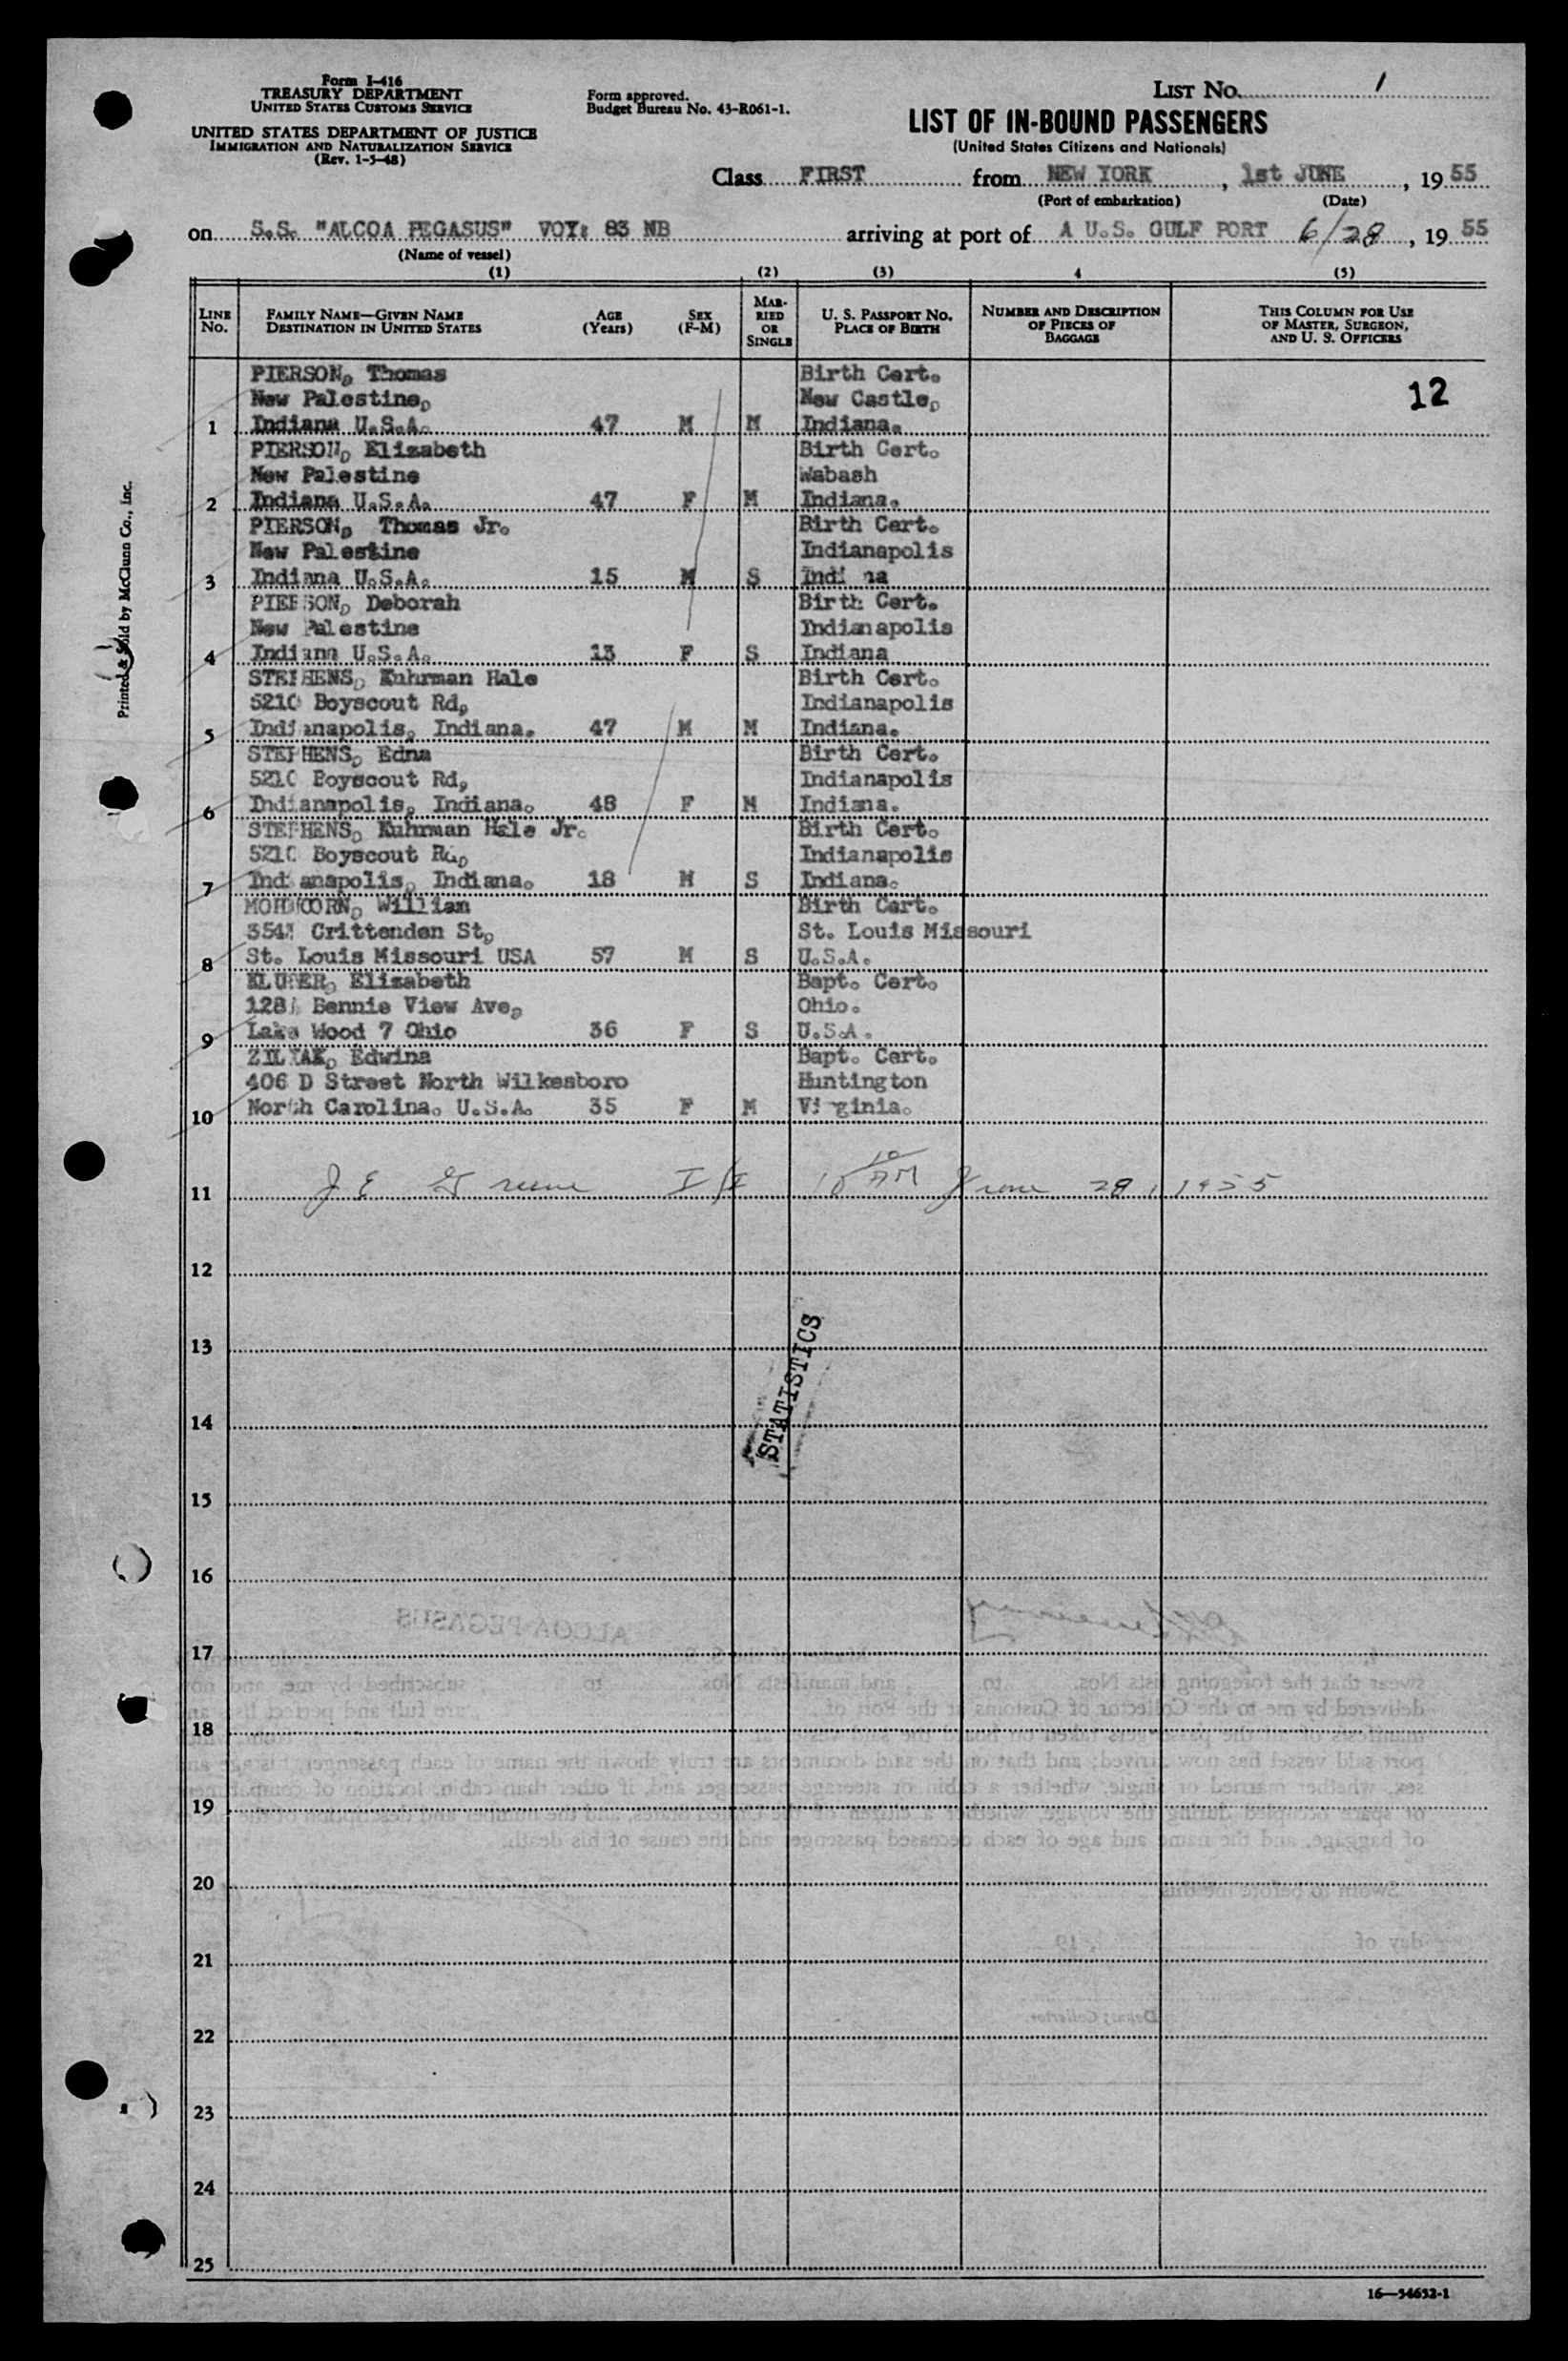 Form I-416
TREASURY DEPARTMENT
UNITED STATES CUSTOMS SERVICE
UNITED STATES DEPARTMENT OF JUSTICE
IMMIGRATION AND NATURALIZATION SERVICE
(Rev. 1-5-48)
Form approved.
Budget Bureau No. 43-R061-1.
LIST NO. 1
LIST OF IN-BOUND PASSENGERS
(United States Citizens and Nationals)
Class FIRST from NEW YORK, 1st JUNE, 1955
(Port of embarkation) (Date)
on S.S. "ALCOA PEGASUS" VOY: 83 NB arriving at port of A U.S. GULF PORT 6/28, 1955
(Name of vessel)
(1) (2) (3) 4 (5)
LINE No. FAMILY NAME—GIVEN NAME DESTINATION IN UNITED STATES AGE (Years) SEX (F-M) MARRIED OR SINGLE U. S. PASSPORT NO. PLACE OF BIRTH NUMBER AND DESCRIPTION OF PIECES OF BAGGAGE THIS COLUMN FOR USE OF MASTER, SURGEON, AND U. S. OFFICERS
12
PIERSON, Thomas Birth Cert.
New Palestine, New Castle,
1 Indiana U.S.A. 47 M M Indiana.
PIERSON, Elizabeth Birth Cert.
New Palestine Wabash
2 Indiana U.S.A. 47 F M Indiana.
PIERSON, Thomas Jr. Birth Cert.
New Palestine Indianapolis
3 Indiana U.S.A. 15 M S Indi na
PIERSON, Deborah Birth Cert.
New Palestine Indianapolis
4 Indiana U.S.A. 13 F S Indiana
STEPHENS, Kuhrman Hale Birth Cert.
5210 Boyscout Rd, Indianapolis
5 Indianapolis, Indiana. 47 M M Indiana.
STEPHENS, Edna Birth Cert.
5210 Boyscout Rd, Indianapolis
6 Indianapolis, Indiana. 48 F M Indiana.
STEPHENS, Kuhrman Hale Jr. Birth Cert.
5210 Boyscout Rd, Indianapolis
7 Indianapolis, Indiana. 18 M S Indiana.
William Birth Cert.
Crittenden St, St. Louis Missouri
8 St. Louis Missouri USA 57 M S U.S.A.
Elizabeth Bapt. Cert.
Bennie View Ave, Ohio.
9 Lake Wood 7 Ohio 36 F S U.S.A.
Edwina Bapt. Cert.
406 D Street North Wilkesboro Huntington
10 North Carolina. U.S.A. 35 F M Virginia.
11 J E Greene I/I 10 10 AM June 28, 1955
12
13
STATISTICS
14
15
16
17
18
19
20
21
22
23
24
25
16—54652-1
Printed & Sold by McClunn Co., Inc.